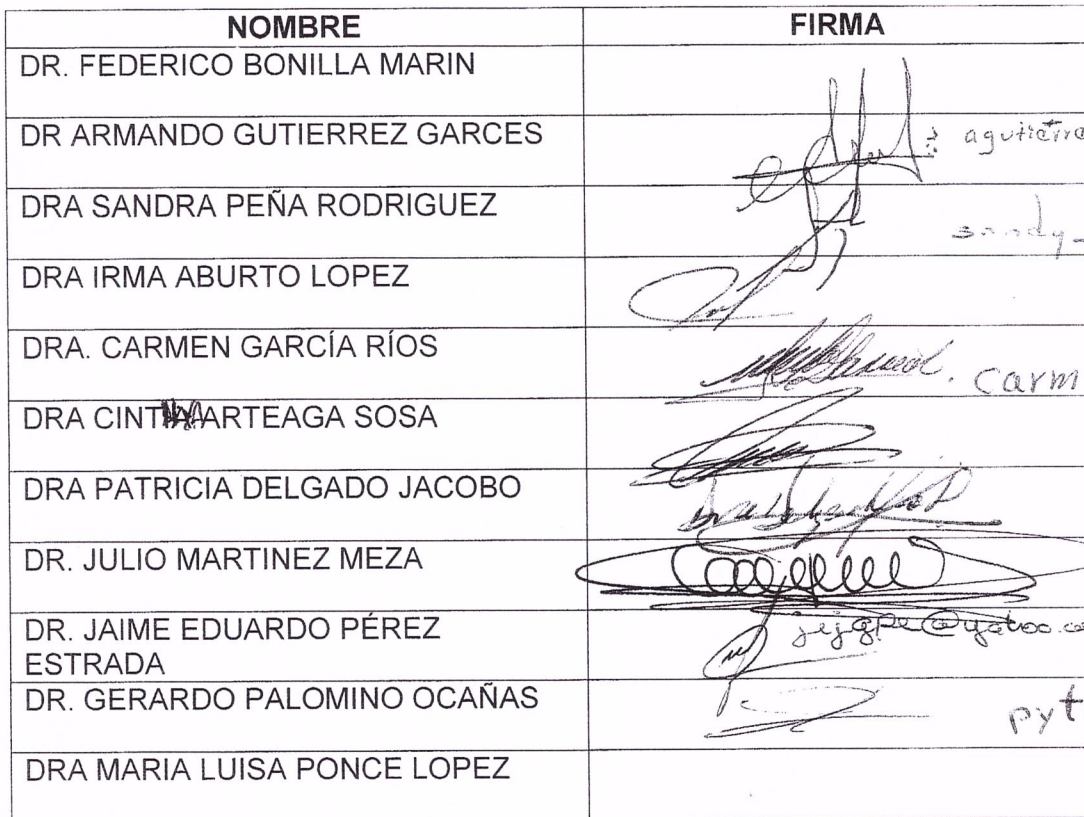 NOMBRE FIRMA
DR. FEDERICO BONILLA MARIN
DR ARMANDO GUTIERREZ GARCES agutierre
DRA SANDRA PEÑA RODRIGUEZ sandy_
DRA IRMA ABURTO LOPEZ
DRA. CARMEN GARCÍA RÍOS Carm
DRA CINTHYA ARTEAGA SOSA
DRA PATRICIA DELGADO JACOBO
DR. JULIO MARTINEZ MEZA
DR. JAIME EDUARDO PÉREZ jejgpe@yahoo.co
ESTRADA
DR. GERARDO PALOMINO OCAÑAS pyt
DRA MARIA LUISA PONCE LOPEZ